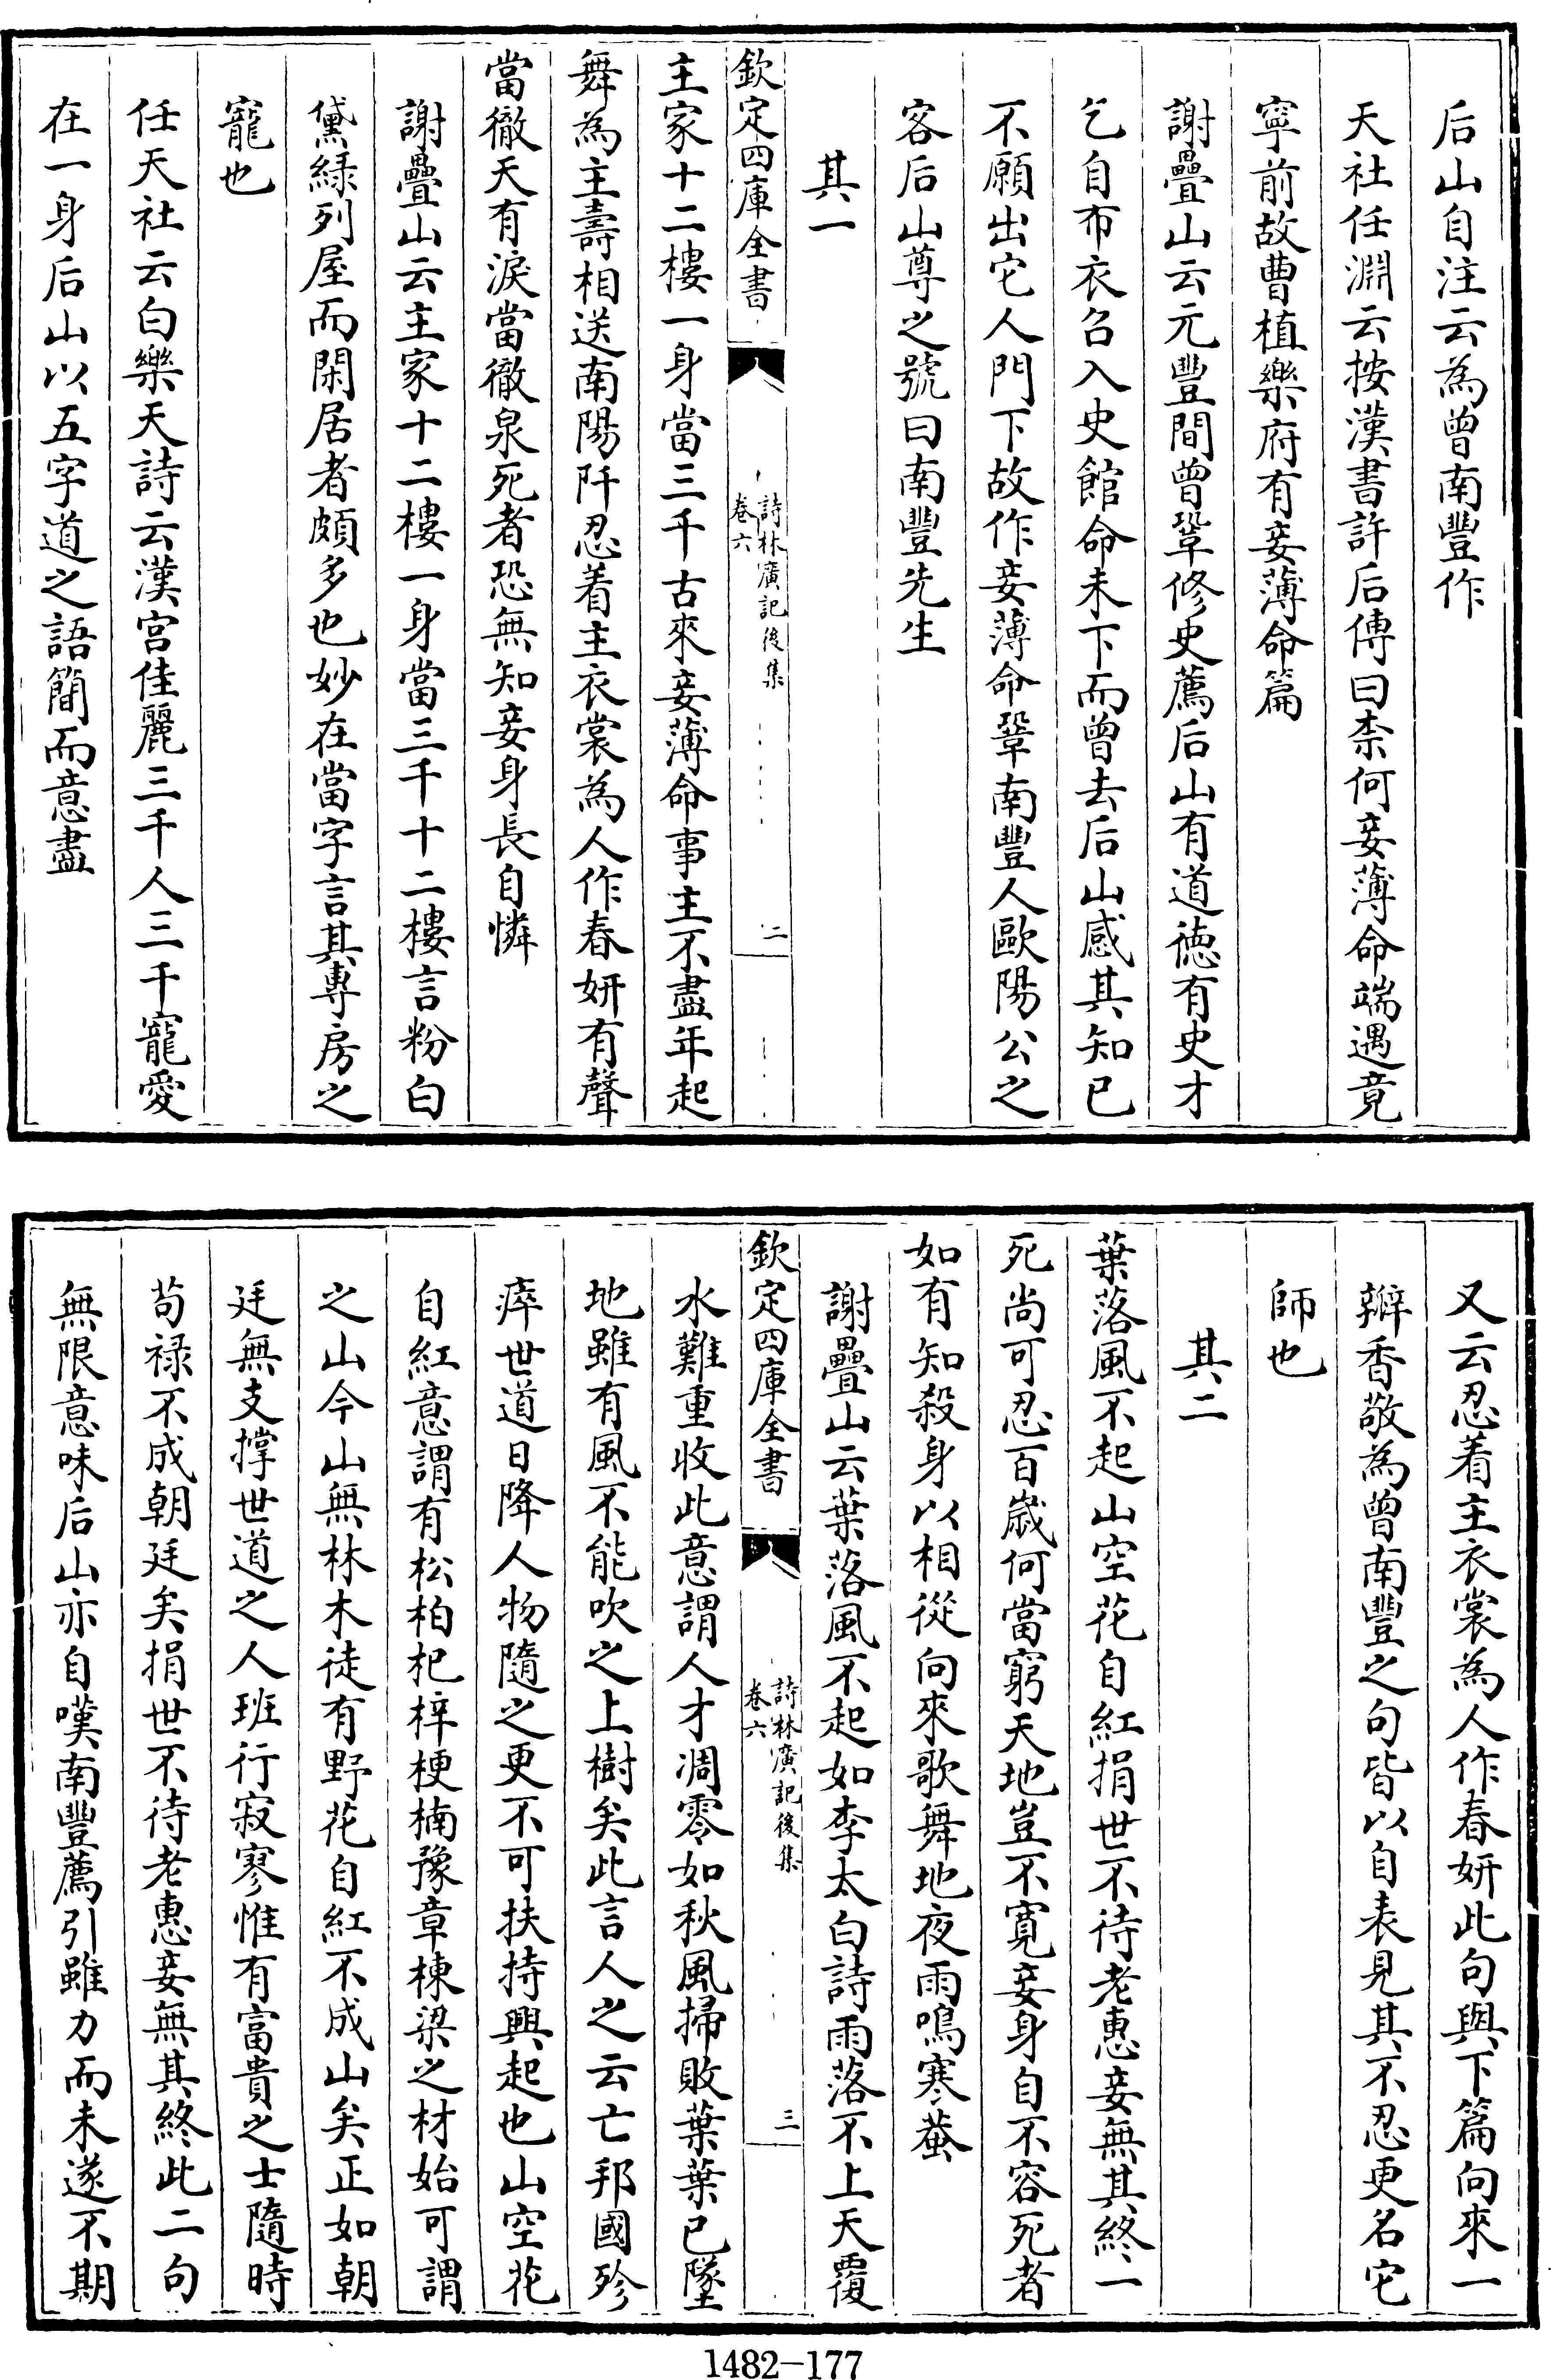 后山自注云為曾南豐作
天社任淵云按漢書許后傳曰柰何妾薄命端遇竟
寧前故曹植樂府有妾薄命篇
謝疊山云元豐間曾鞏修史薦后山有道徳有史才
乞自布衣召入史館命未下而曾去后山感其知已
不願出它人門下故作妾薄命鞏南豐人歐陽公之
客后山尊之號曰南豐先生
其一
欽定四庫全書
詩林廣記後集
卷六
二
主家十二樓一身當三千古來妾薄命事主不盡年起
舞為主壽相送南陽阡忍着主衣裳為人作春妍有聲
當徹天有淚當徹泉死者恐無知妾身長自憐
謝疊山云主家十二樓一身當三千十二樓言粉白
黛綠列屋而閑居者頗多也妙在當字言其專房之
寵也
任天社云白樂天詩云漢宮佳麗三千人三千寵愛
在一身后山以五字道之語簡而意盡
又云忍着主衣裳為人作春妍此句與下篇向來一
瓣香敬為曾南豐之句皆以自表見其不忍更名它
師也
其二
葉落風不起山空花自紅捐世不待老惠妾無其終一
死尚可忍百歲何當窮天地豈不寬妾身自不容死者
如有知殺身以相從向來歌舞地夜雨鳴寒蛩
謝疊山云葉落風不起如李太白詩雨落不上天覆
欽定四庫全書
詩林廣記後集
卷六
三
水難重收此意謂人才凋零如秋風掃敗葉葉已墜
地雖有風不能吹之上樹矣此言人之云亡邦國殄
瘁世道日降人物隨之更不可扶持興起也山空花
自紅意謂有松柏杞梓梗楠豫章棟梁之材始可謂
之山今山無林木徒有野花自紅不成山矣正如朝
廷無支撐世道之人班行寂寥惟有富貴之士隨時
苟祿不成朝廷矣捐世不待老惠妾無其終此二句
無限意味后山亦自嘆南豐薦引雖力而未遂不期
1482-177